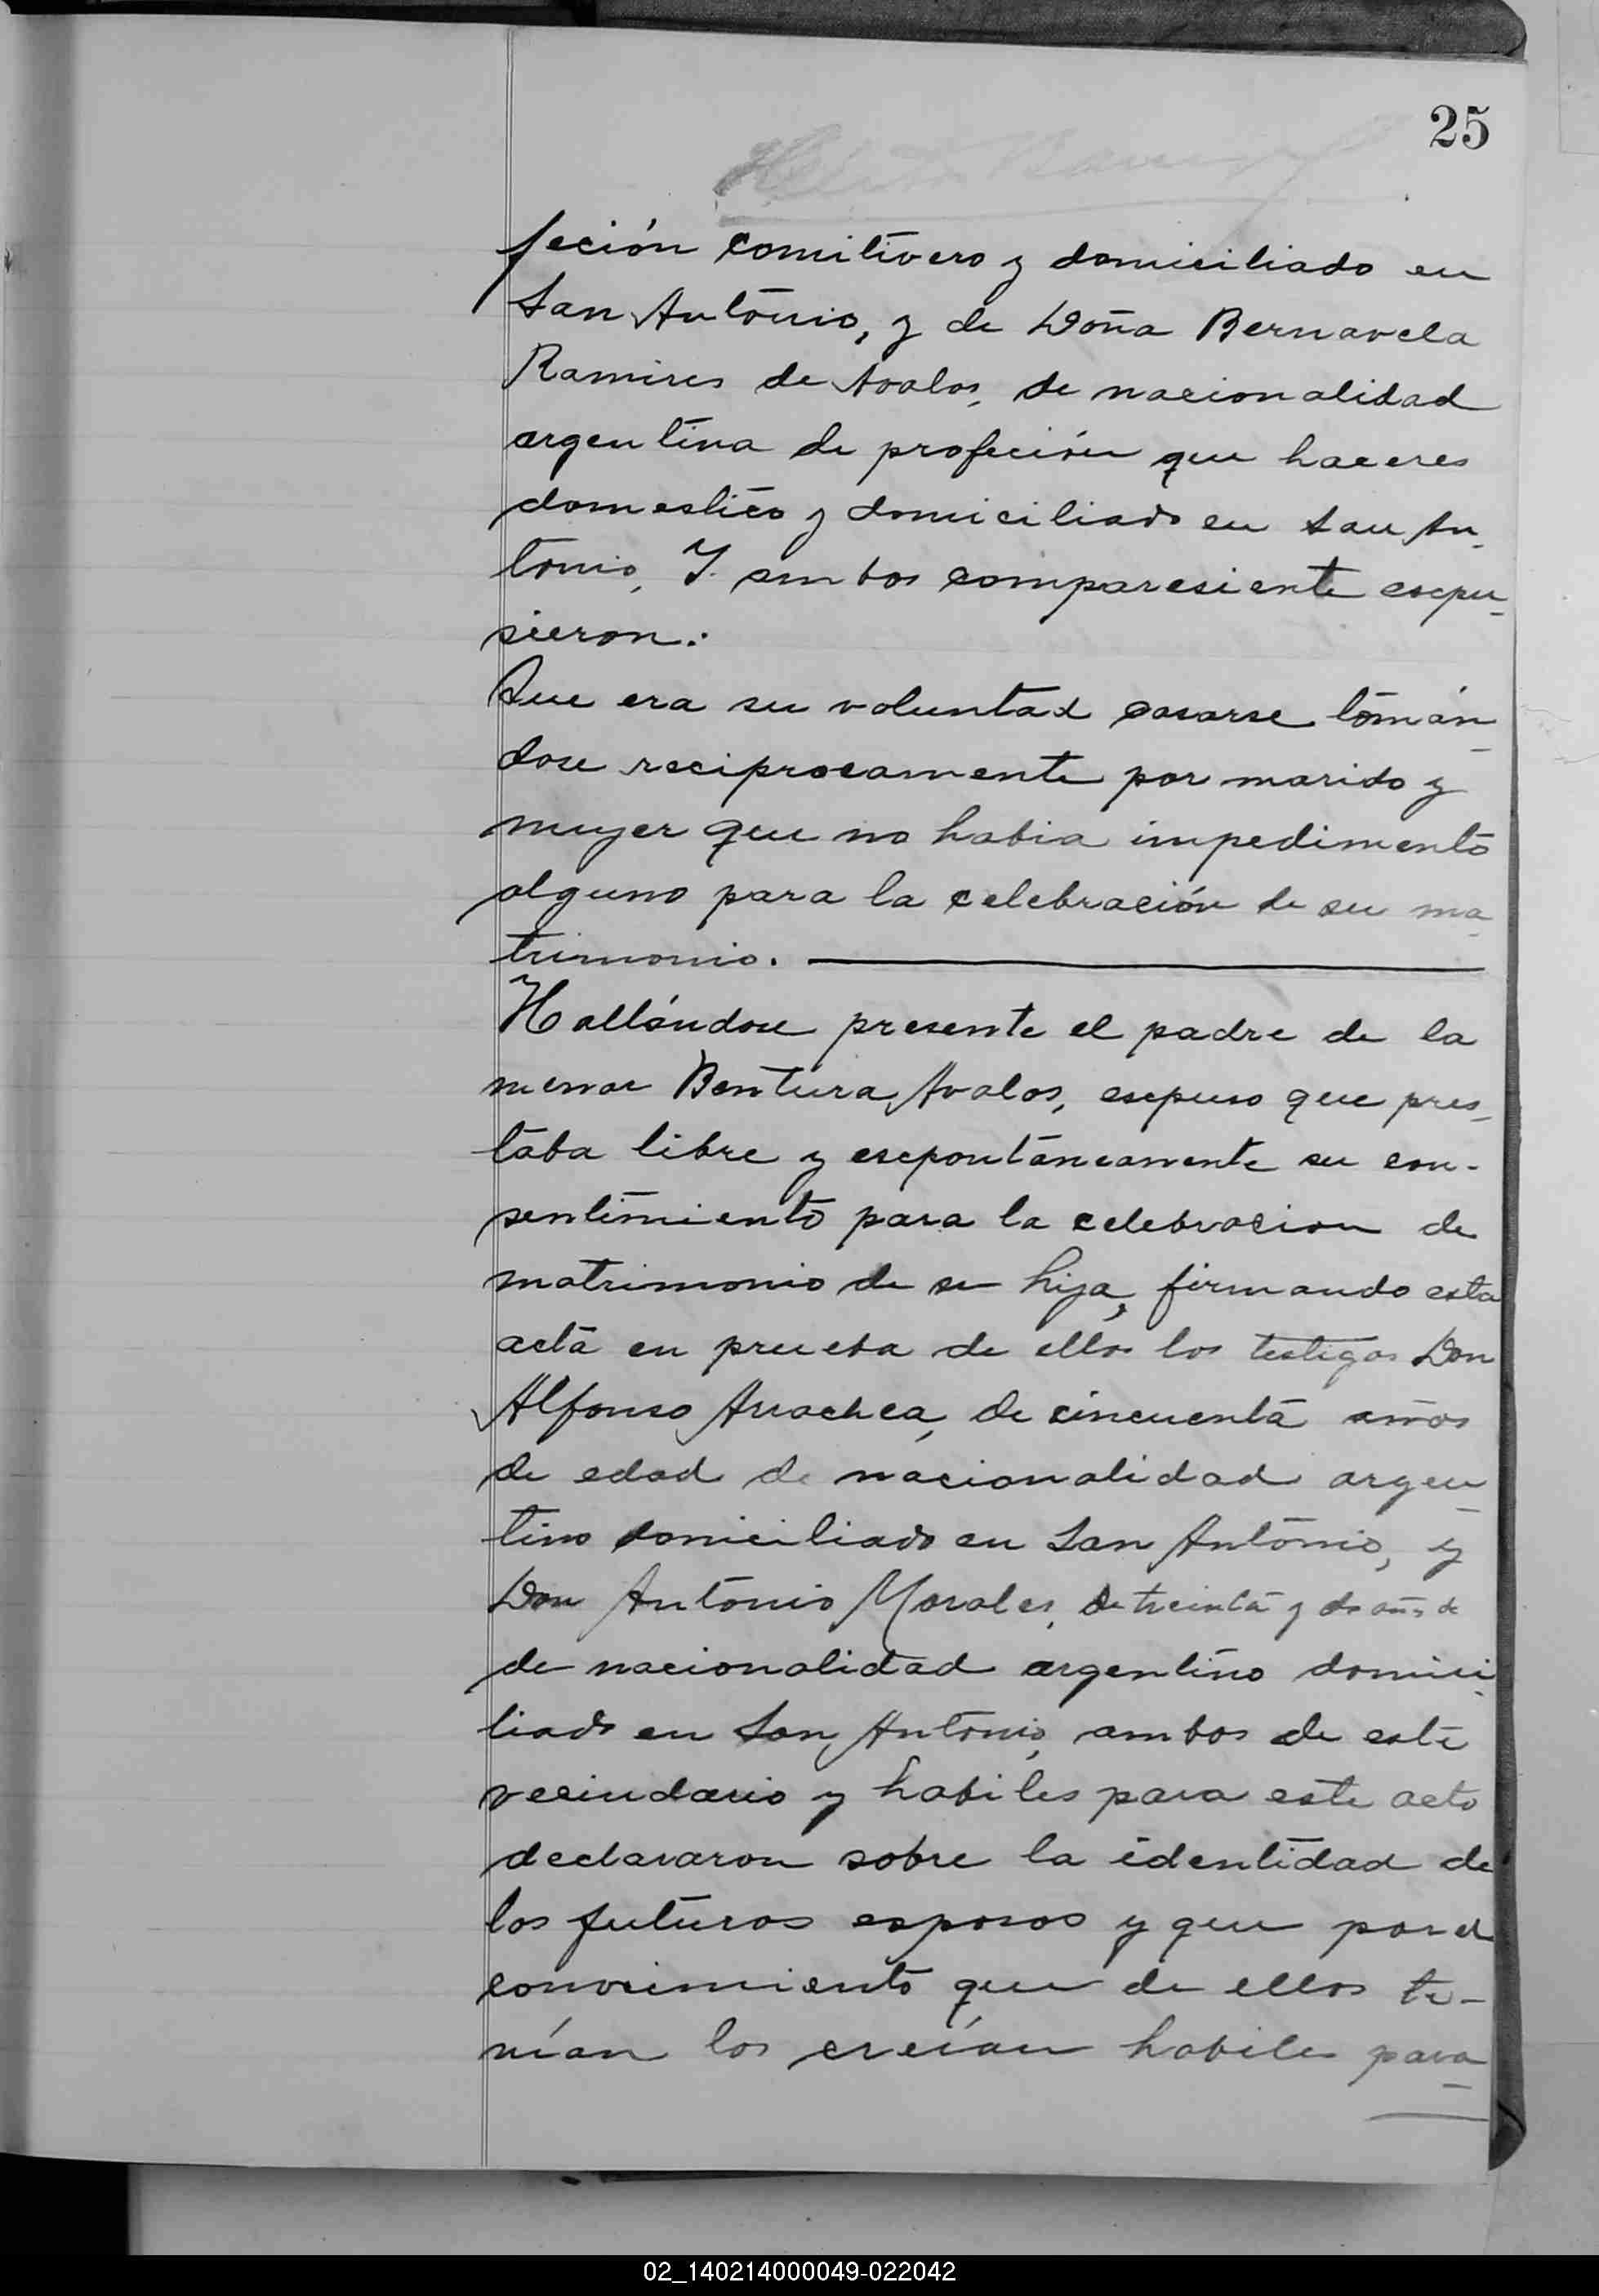 25
feción comitivero y domiciliado en
San Antonio, y de Doña Bernavela
Ramires de Avalos, de nacionalidad
argentina de profeción que haceres
domestico y domiciliado en San An-
tonio, Y ambos comparesiente escpu-
sieron:
Que era su voluntad casarse tomán-
dose reciprocamente por marido y
mujer que no habia impedimento
alguno para la celebración de su ma-
trimonio.
Hallándose presente el padre de la
menor Bentura Avalos, escpuso que pres-
taba libre y escpontáneamente su con-
sentimiento para la celebracion de
matrimonio de su hija, firmando esta
acta en prueba de ello los testigos Don
Alfonso Arrachea, de cincuenta años
de edad de nacionalidad argen-
tino domiciliado en San Antonio, y
Don Antonio Morales, de treinta y dos años de
de nacionalidad argentino domici-
liado en San Antonio, ambos de este
vecindario y habiles para este acto
declararon sobre la identidad de
los futuros esposos y que por el
conocimiento que de ellos te-
nían los creían habiles para
02_140214000049-022042